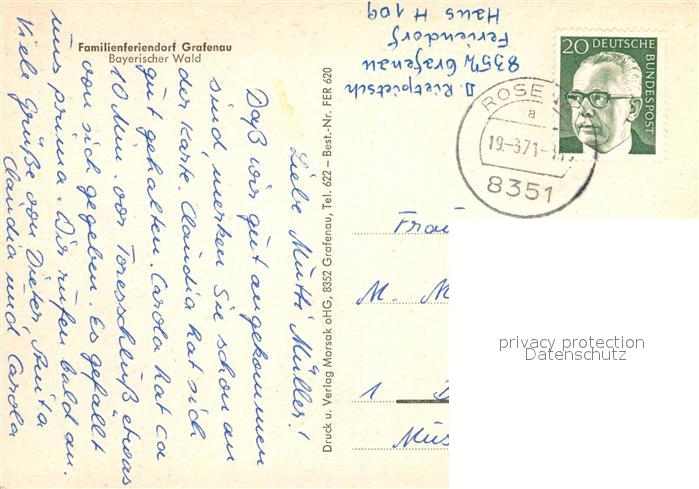 Familienferiendorf Grafenau
Bayerischer Wald
Liebe Mutti Müller!
Daß wir gut angekommen
sind, merken Sie schon an
der Karte. Claudia hat sich
gut gehalten. Carola hat ca
10 Min. vor Toresschluß etwas
von sich gegeben. Es gefällt
uns prima. Wir rufen bald an.
Viele Grüße von Dieter, Anita
Claudia und Carola
Druck u. Verlag Morsak oHG, 8352 Grafenau, Tel. 622 – Best.-Nr. FER 620
D. Rietpietsch
8351 Grafenau
Feriendorf
Haus H 109
20 DEUTSCHE
BUNDESPOST
ROSE
a
19.-3.71
8351
Frau
M. M
1 D
privacy protection
Datenschutz